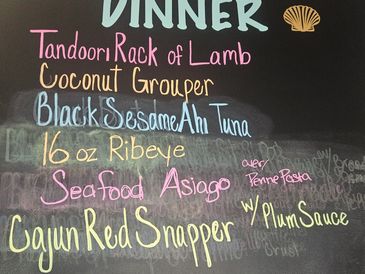 DINNER
Tandoori Rack of Lamb
Coconut Grouper
Black Sesame Ahi Tuna
16 oz Ribeye
Seafood Asiago over/ Penne Pasta
Cajun Red Snapper w/ Plum Sauce